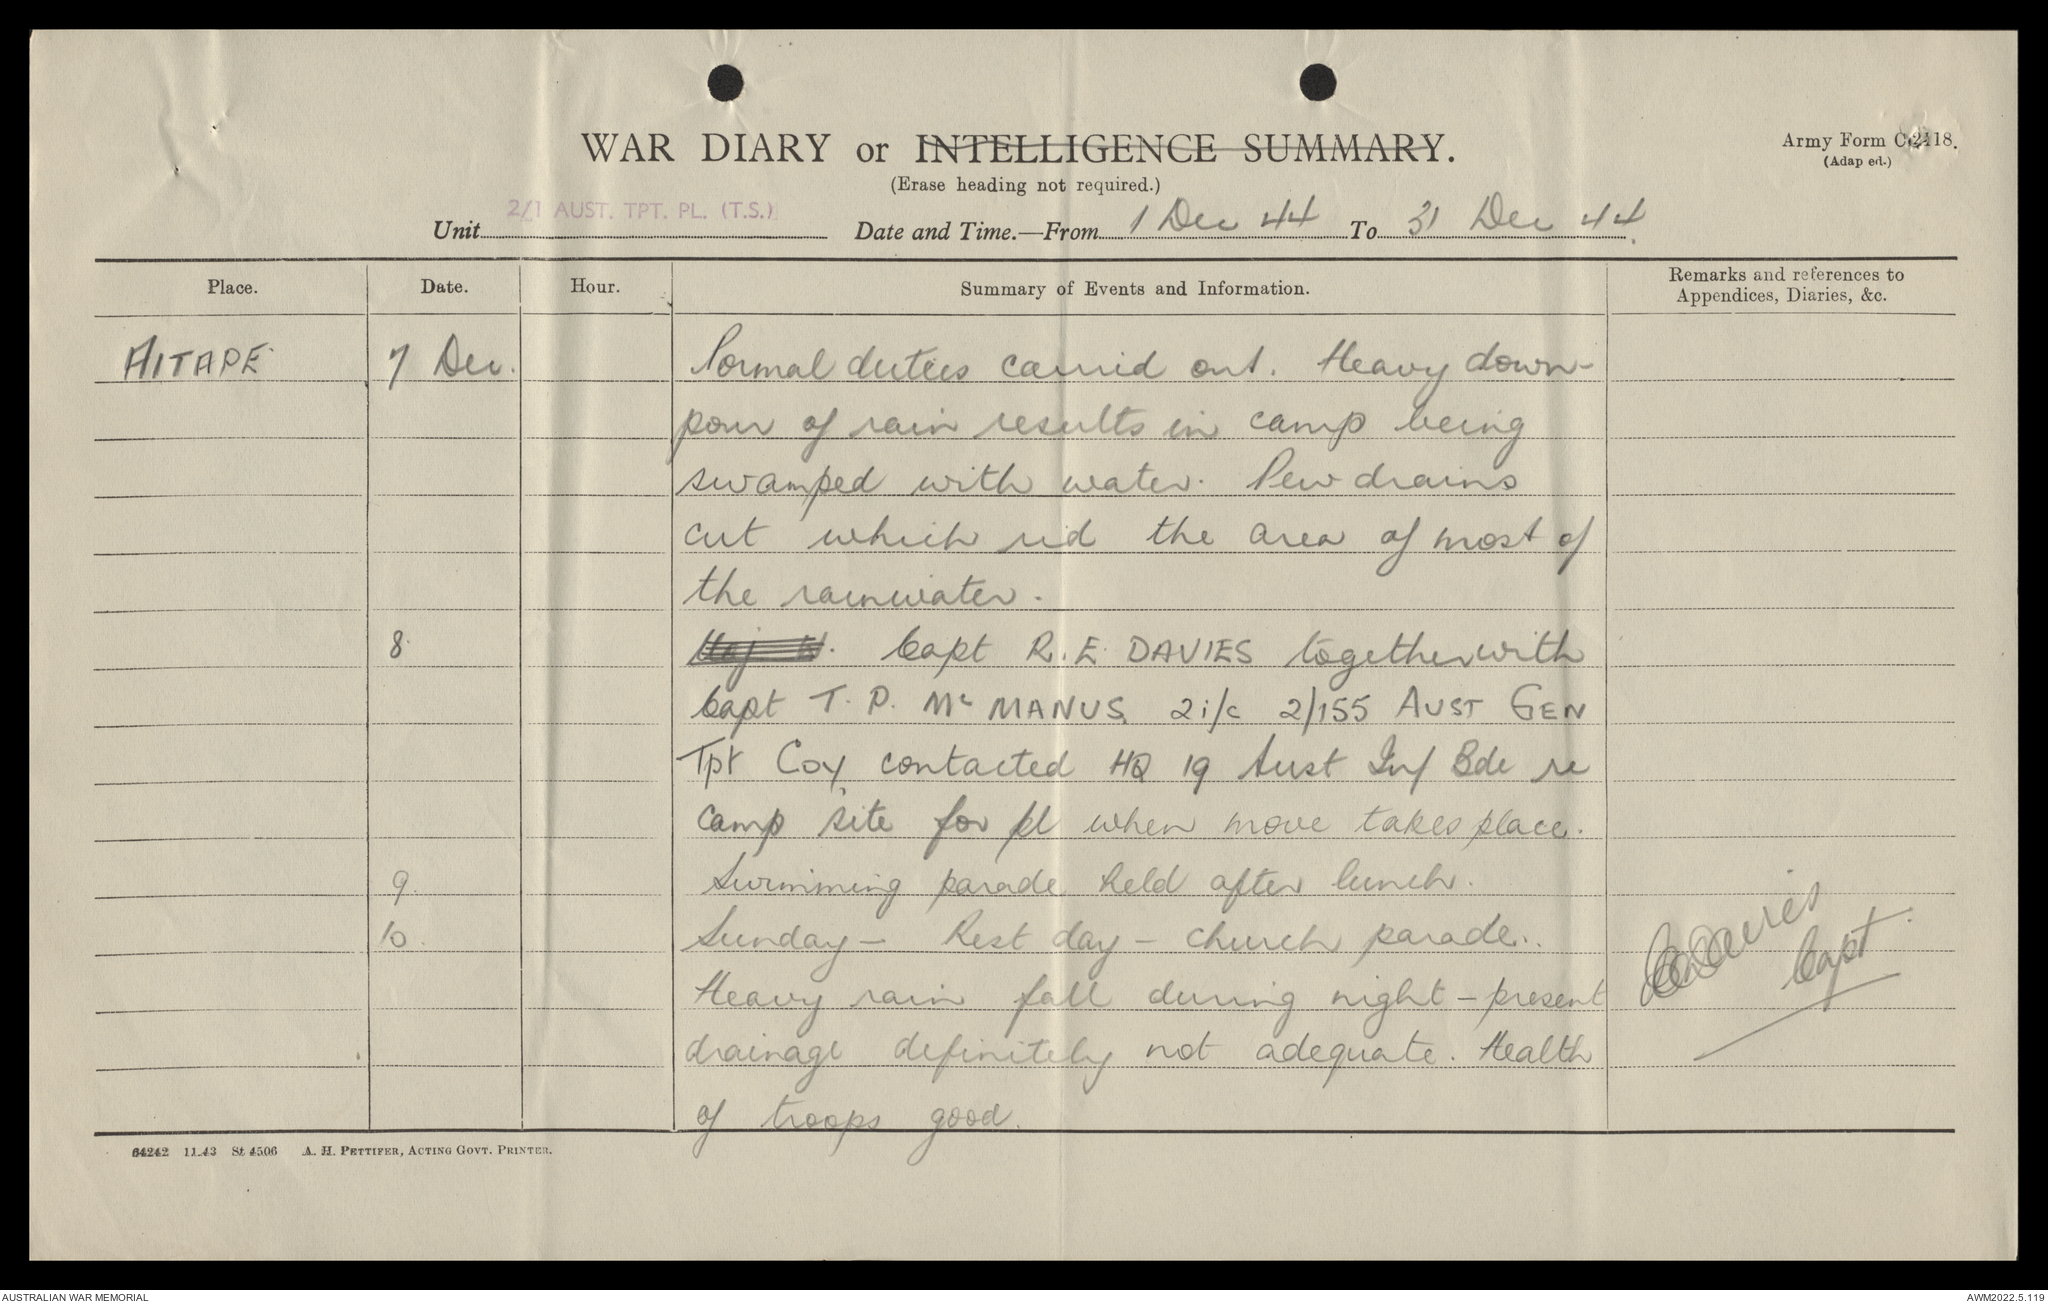 WAR DIARY or INTELLIGENCE SUMMARY.
(Erase heading not required.)
Army Form C.2118.
(Adapted.)
Unit 2/1 AUST. TPT. PL. (T.S.) Date and Time.—From 1 Dec 44 To 31 Dec 44
Place. Date. Hour. Summary of Events and Information. Remarks and references to Appendices, Diaries, &c.
AITAPE 7 Dec. Normal duties carried out. Heavy down-
pour of rain results in camp being
swamped with water. New drains
cut which rid the area of most of
the rainwater.
8 Maj Capt R.E. DAVIES together with
Capt T. P. McMANUS 2i/c 2/155 AUST GEN
Tpt Coy contacted HQ 19 Aust Inf Bde re
camp site for pl when move takes place.
9. Swimming parade held after lunch.
10. Sunday – Rest day – church parade.
Heavy rain fall during night – present
drainage definitely not adequate. Health
of troops good.
REDavies
Capt
64242 11.43 St 4506 A. H. PETTIFER, ACTING GOVT. PRINTER.
AUSTRALIAN WAR MEMORIAL AWM2022.5.119